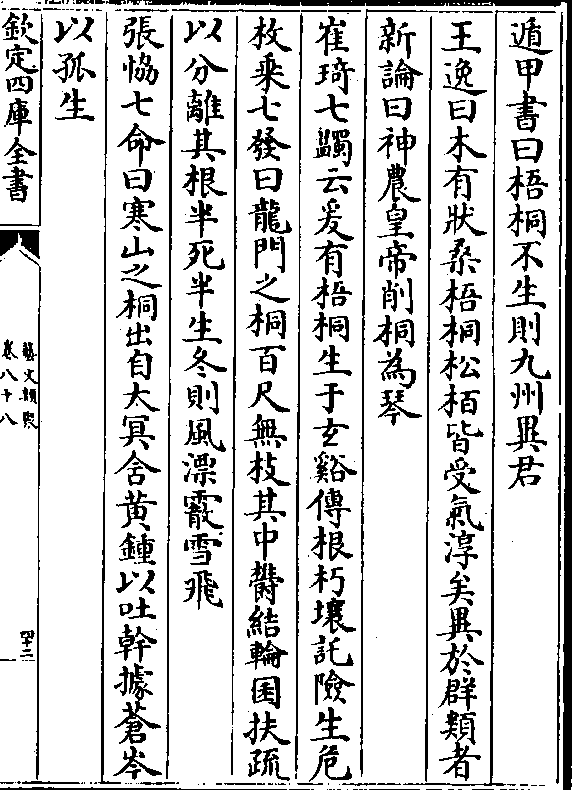 遁甲書曰梧桐不生則九州異君
王逸曰木有狀桑梧桐松栢皆受氣淳矣異於群類者
新論曰神農皇帝削桐為琴
崔琦七蠲云爰有梧桐生于玄谿傳根朽壤託險生危
枚乗七發曰龍門之桐百尺無枝其中鬱結輪囷扶疏
以分離其根半死半生冬則風漂霰雪飛
張協七命曰寒山之桐出自太冥含黄鍾以吐幹據蒼岑
以孤生
欽定四庫全書
藝文類聚
卷八十八
四十三